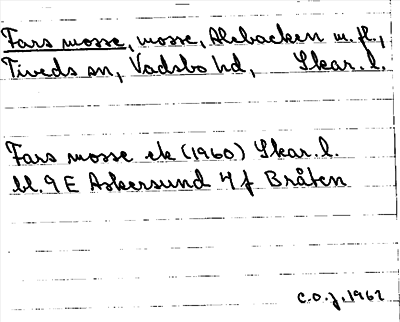 Fars mosse, mosse, Alsbacken m.fl.,
Tiveds sn, Vadsbo hd, Skar. l.
Fars mosse ek (1960) Skar. l.
bl. 9 E Askersund 4 f Bråten
C.O.J. 1962